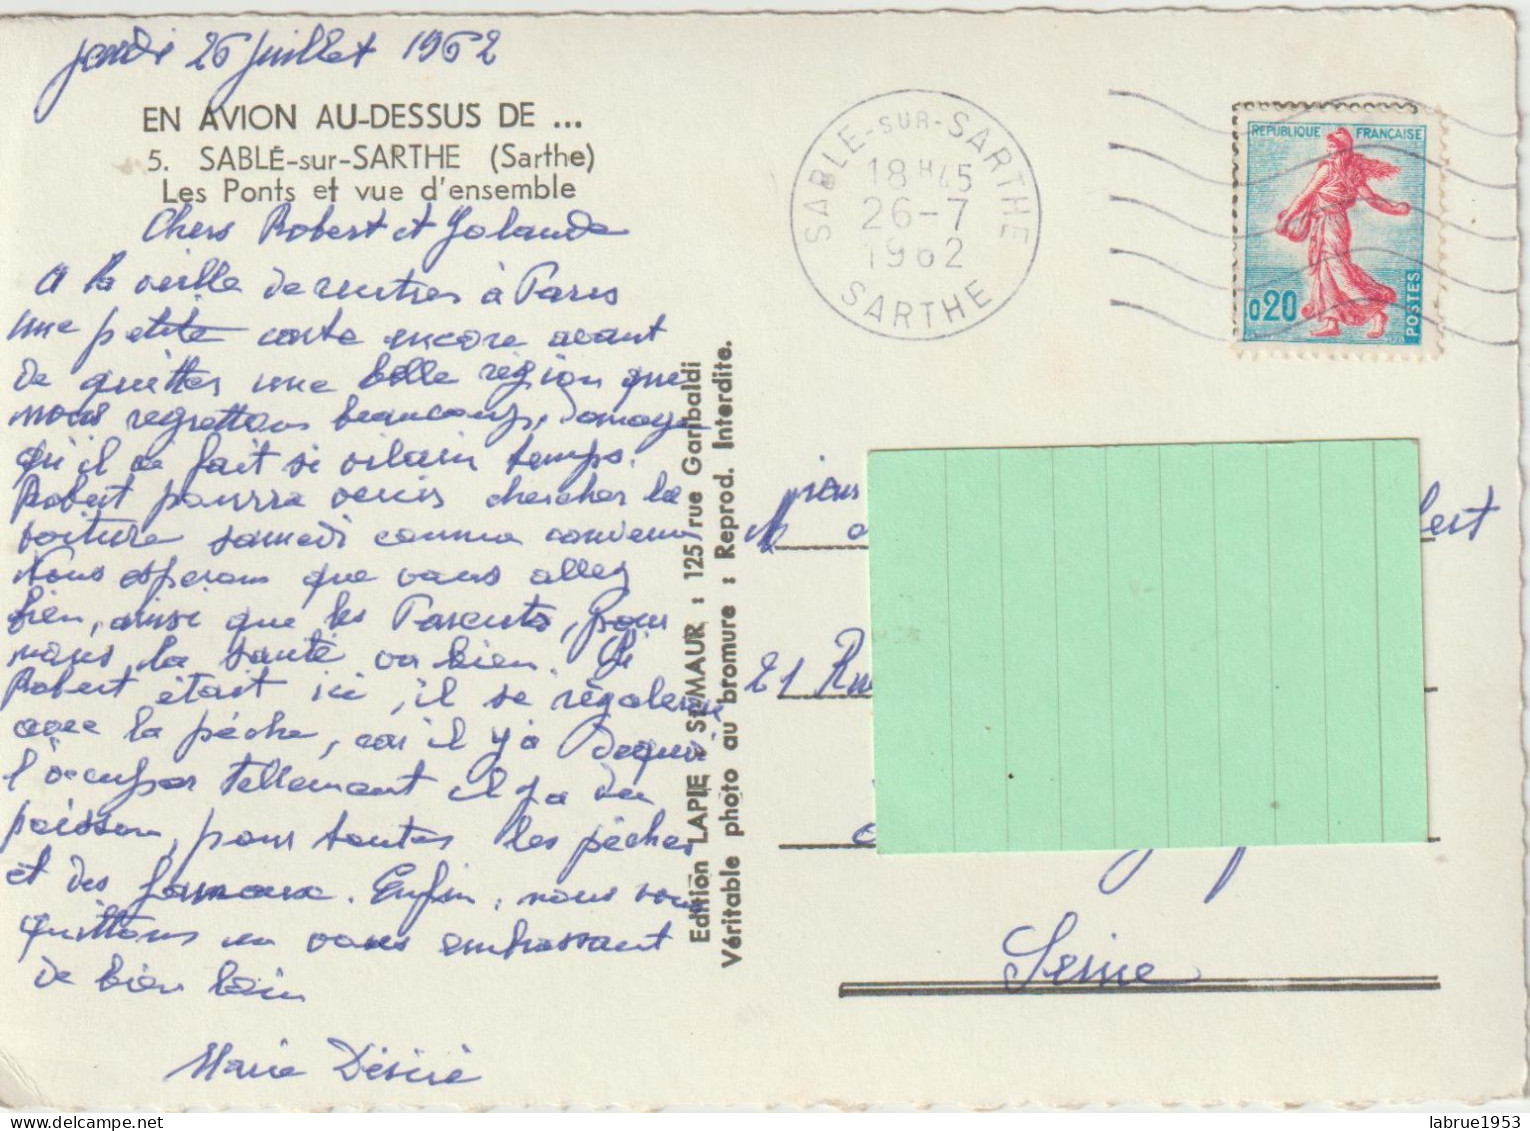 jeudi 26 Juillet 1962
EN AVION AU-DESSUS DE ...
5. SABLÉ-sur-SARTHE (Sarthe)
Les Ponts et vue d'ensemble
Chers Robert et Yolande
A la veille de rentrer à Paris
une petite carte encore avant
de quitter une belle région que
nous regrettons beaucoup, Domage
qu'il ae fait si vilain temps.
Robert pourra venir chercher la
voiture samedi comme convenu
Nous esperons que vous allez
bien, ainsi que les Parents, pour
nous, la santé va bien. Si
Robert était ici, il se régalerai
avec la pêche, car il y a de quoi
l'occuper tellement il y a du
poisson, pour toutes les pêches
et des
Enfin, nous vous
quittons en vous embrassant
de bien loin
Marie Désiré
Edition LAPIE - St-MAUR : 125, rue Garibaldi
Véritable photo au bromure : Reprod. Interdite.
SABLE-SUR-SARTHE
18H45
26-7
1962
SARTHE
REPUBLIQUE FRANÇAISE
0.20
POSTES
21 Rue
Seine
labrue1953